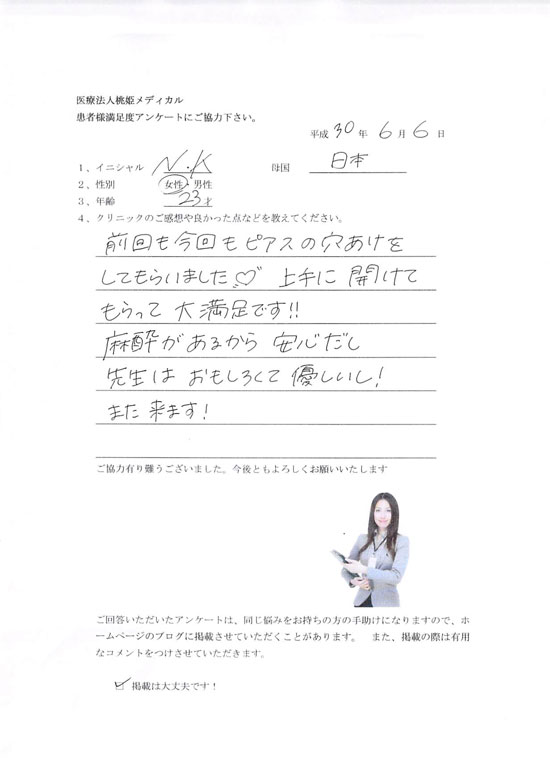 医療法人桃姫メディカル
患者様満足度アンケートにご協力下さい。
平成 30 年 6 月 6 日
1、イニシャル N.K 母国 日本
2、性別 女性・男性
3、年齢 23 才
4、クリニックのご感想や良かった点などを教えてください。
前回も今回もピアスの穴あけを
してもらいました♡ 上手に開けて
もらって大満足です!!
麻酔があるから安心だし
先生はおもしろくて優しいし!
また来ます!
ご協力有り難うございました。今後ともよろしくお願いいたします
ご回答いただいたアンケートは、同じ悩みをお持ちの方の手助けになりますので、ホ
ームページのブログに掲載させていただくことがあります。 また、掲載の際は有用
なコメントをつけさせていただきます。
☑ 掲載は大丈夫です!